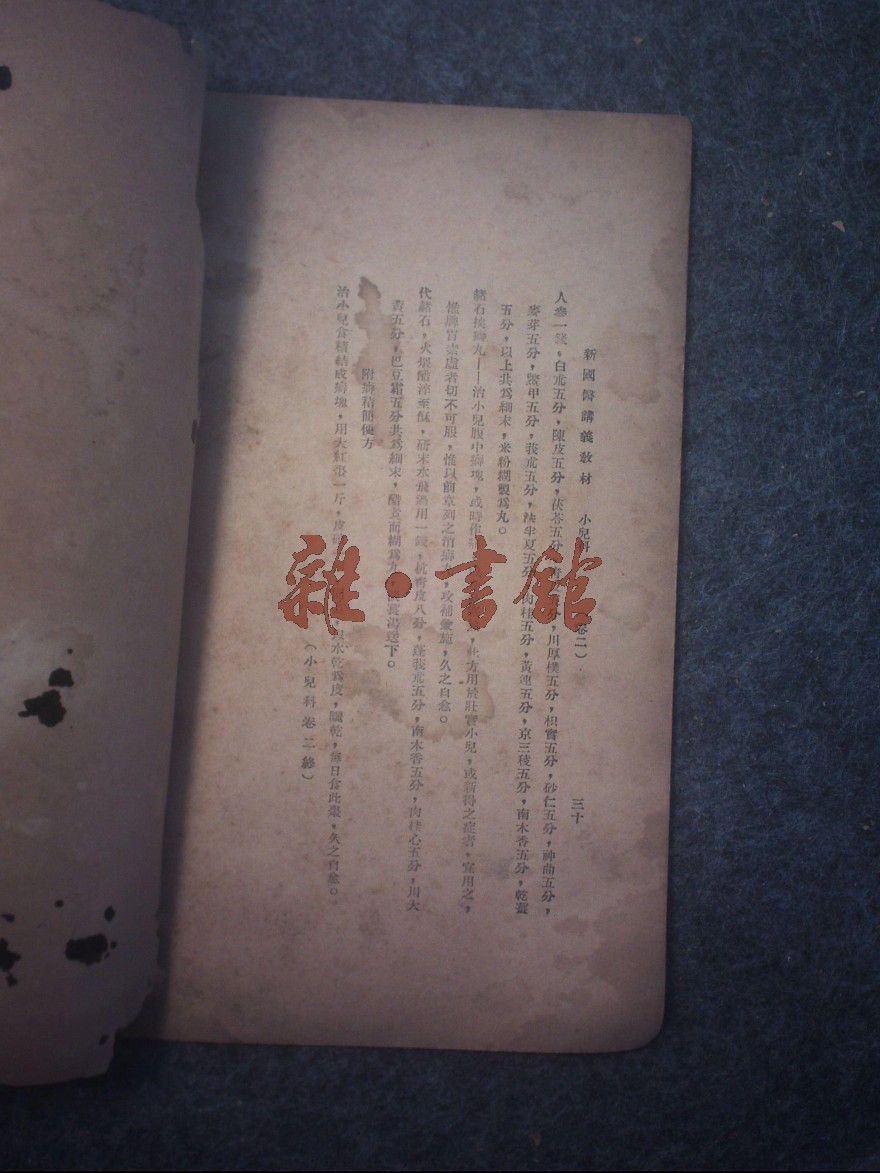 新國醫講義教材 小兒 卷二) 三十
人參一錢,白朮五分,陳皮五分,茯苓五分,青 分,川厚樸五分,枳實五分,砂仁五分,神曲五分,
麥芽五分,鱉甲五分,莪朮五分,法半夏五分,肉桂五分,黃連五分,京三稜五分,南木香五分,乾薑
五分,以上共爲細末,米粉糊製爲丸。
赭石挨癖丸——治小兒腹中癖塊,或時作 此方用於壯實小兒,或新得之症者,宜用之,
惟脾胃素虛者切不可服,惟以前章列之消癖 攻補兼施,久之自愈。
代赭石,火煨醋淬至酥,研末水飛過用一錢,杭青皮八分,蓬莪朮五分,南木香五分,肉桂心五分,川大
黃五分,巴豆霜五分共爲細末,醋煮面糊爲丸, 薑湯送下。
附癖積簡便方
治小兒食積結成癖塊,用大紅棗一斤,皮硝 以水乾爲度,曬乾,每日食此棗,久之自愈。
(小兒科卷二終)
雜·書館